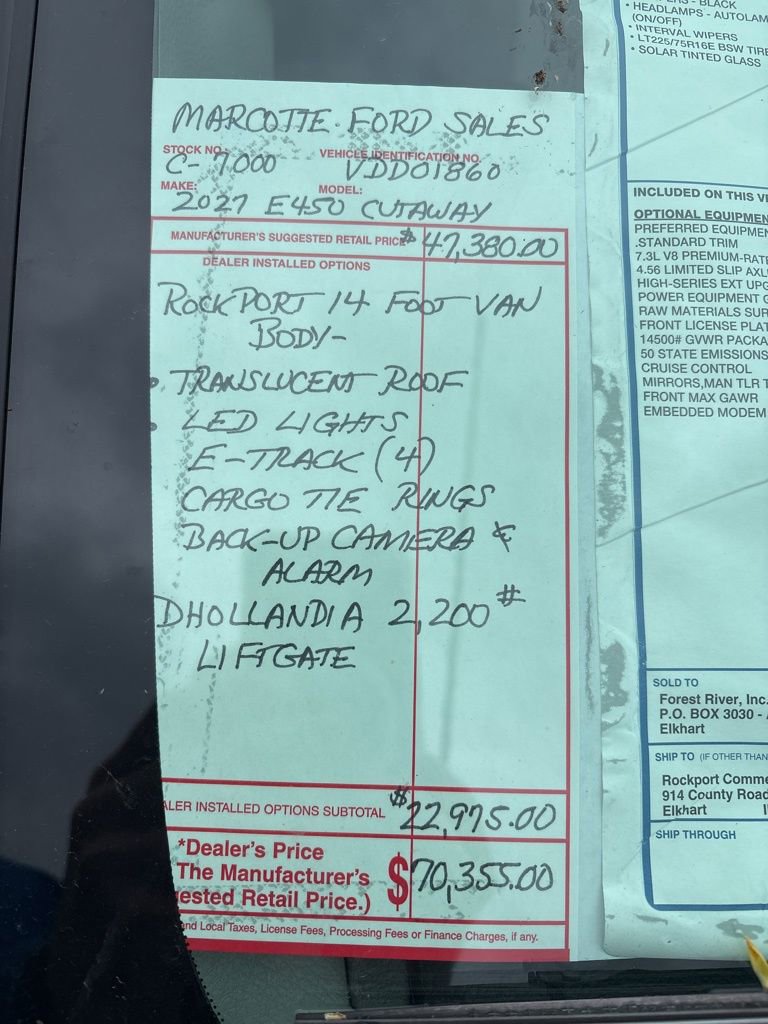 MARCOTTE FORD SALES
STOCK NO. VEHICLE IDENTIFICATION NO.
C-7000 VDD01860
MAKE: MODEL:
2027 E450 CUTAWAY
MANUFACTURER'S SUGGESTED RETAIL PRICE $47,380.00
DEALER INSTALLED OPTIONS
ROCKPORT 14 FOOT VAN
BODY-
• TRANSLUCENT ROOF
• LED LIGHTS
E-TRACK (4)
CARGO TIE RINGS
BACK-UP CAMERA &
ALARM
DHOLLANDIA 2,200#
LIFTGATE
INSTALLED OPTIONS SUBTOTAL $22,975.00
*Dealer's Price
The Manufacturer's
Retail Price.) $70,355.00
Local Taxes, License Fees, Processing Fees or Finance Charges, if any.
- BLACK
• HEADLAMPS - AUTOLAM
(ON/OFF)
• INTERVAL WIPERS
• LT225/75R16E BSW TIRE
• SOLAR TINTED GLASS
INCLUDED ON THIS
OPTIONAL EQUIPMEN
PREFERRED EQUIPME
.STANDARD TRIM
7.3L V8 PREMIUM-RAT
4.56 LIMITED SLIP AXL
HIGH-SERIES EXT UPG
POWER EQUIPMENT
RAW MATERIALS SUR
FRONT LICENSE PLAT
14500# GVWR PACKA
50 STATE EMISSIONS
CRUISE CONTROL
MIRRORS,MAN TLR T
FRONT MAX GAWR
EMBEDDED MODEM
SOLD TO
Forest River, Inc.
P.O. BOX 3030 -
Elkhart
SHIP TO (IF OTHER THAN
Rockport Comme
914 County Road
Elkhart
SHIP THROUGH